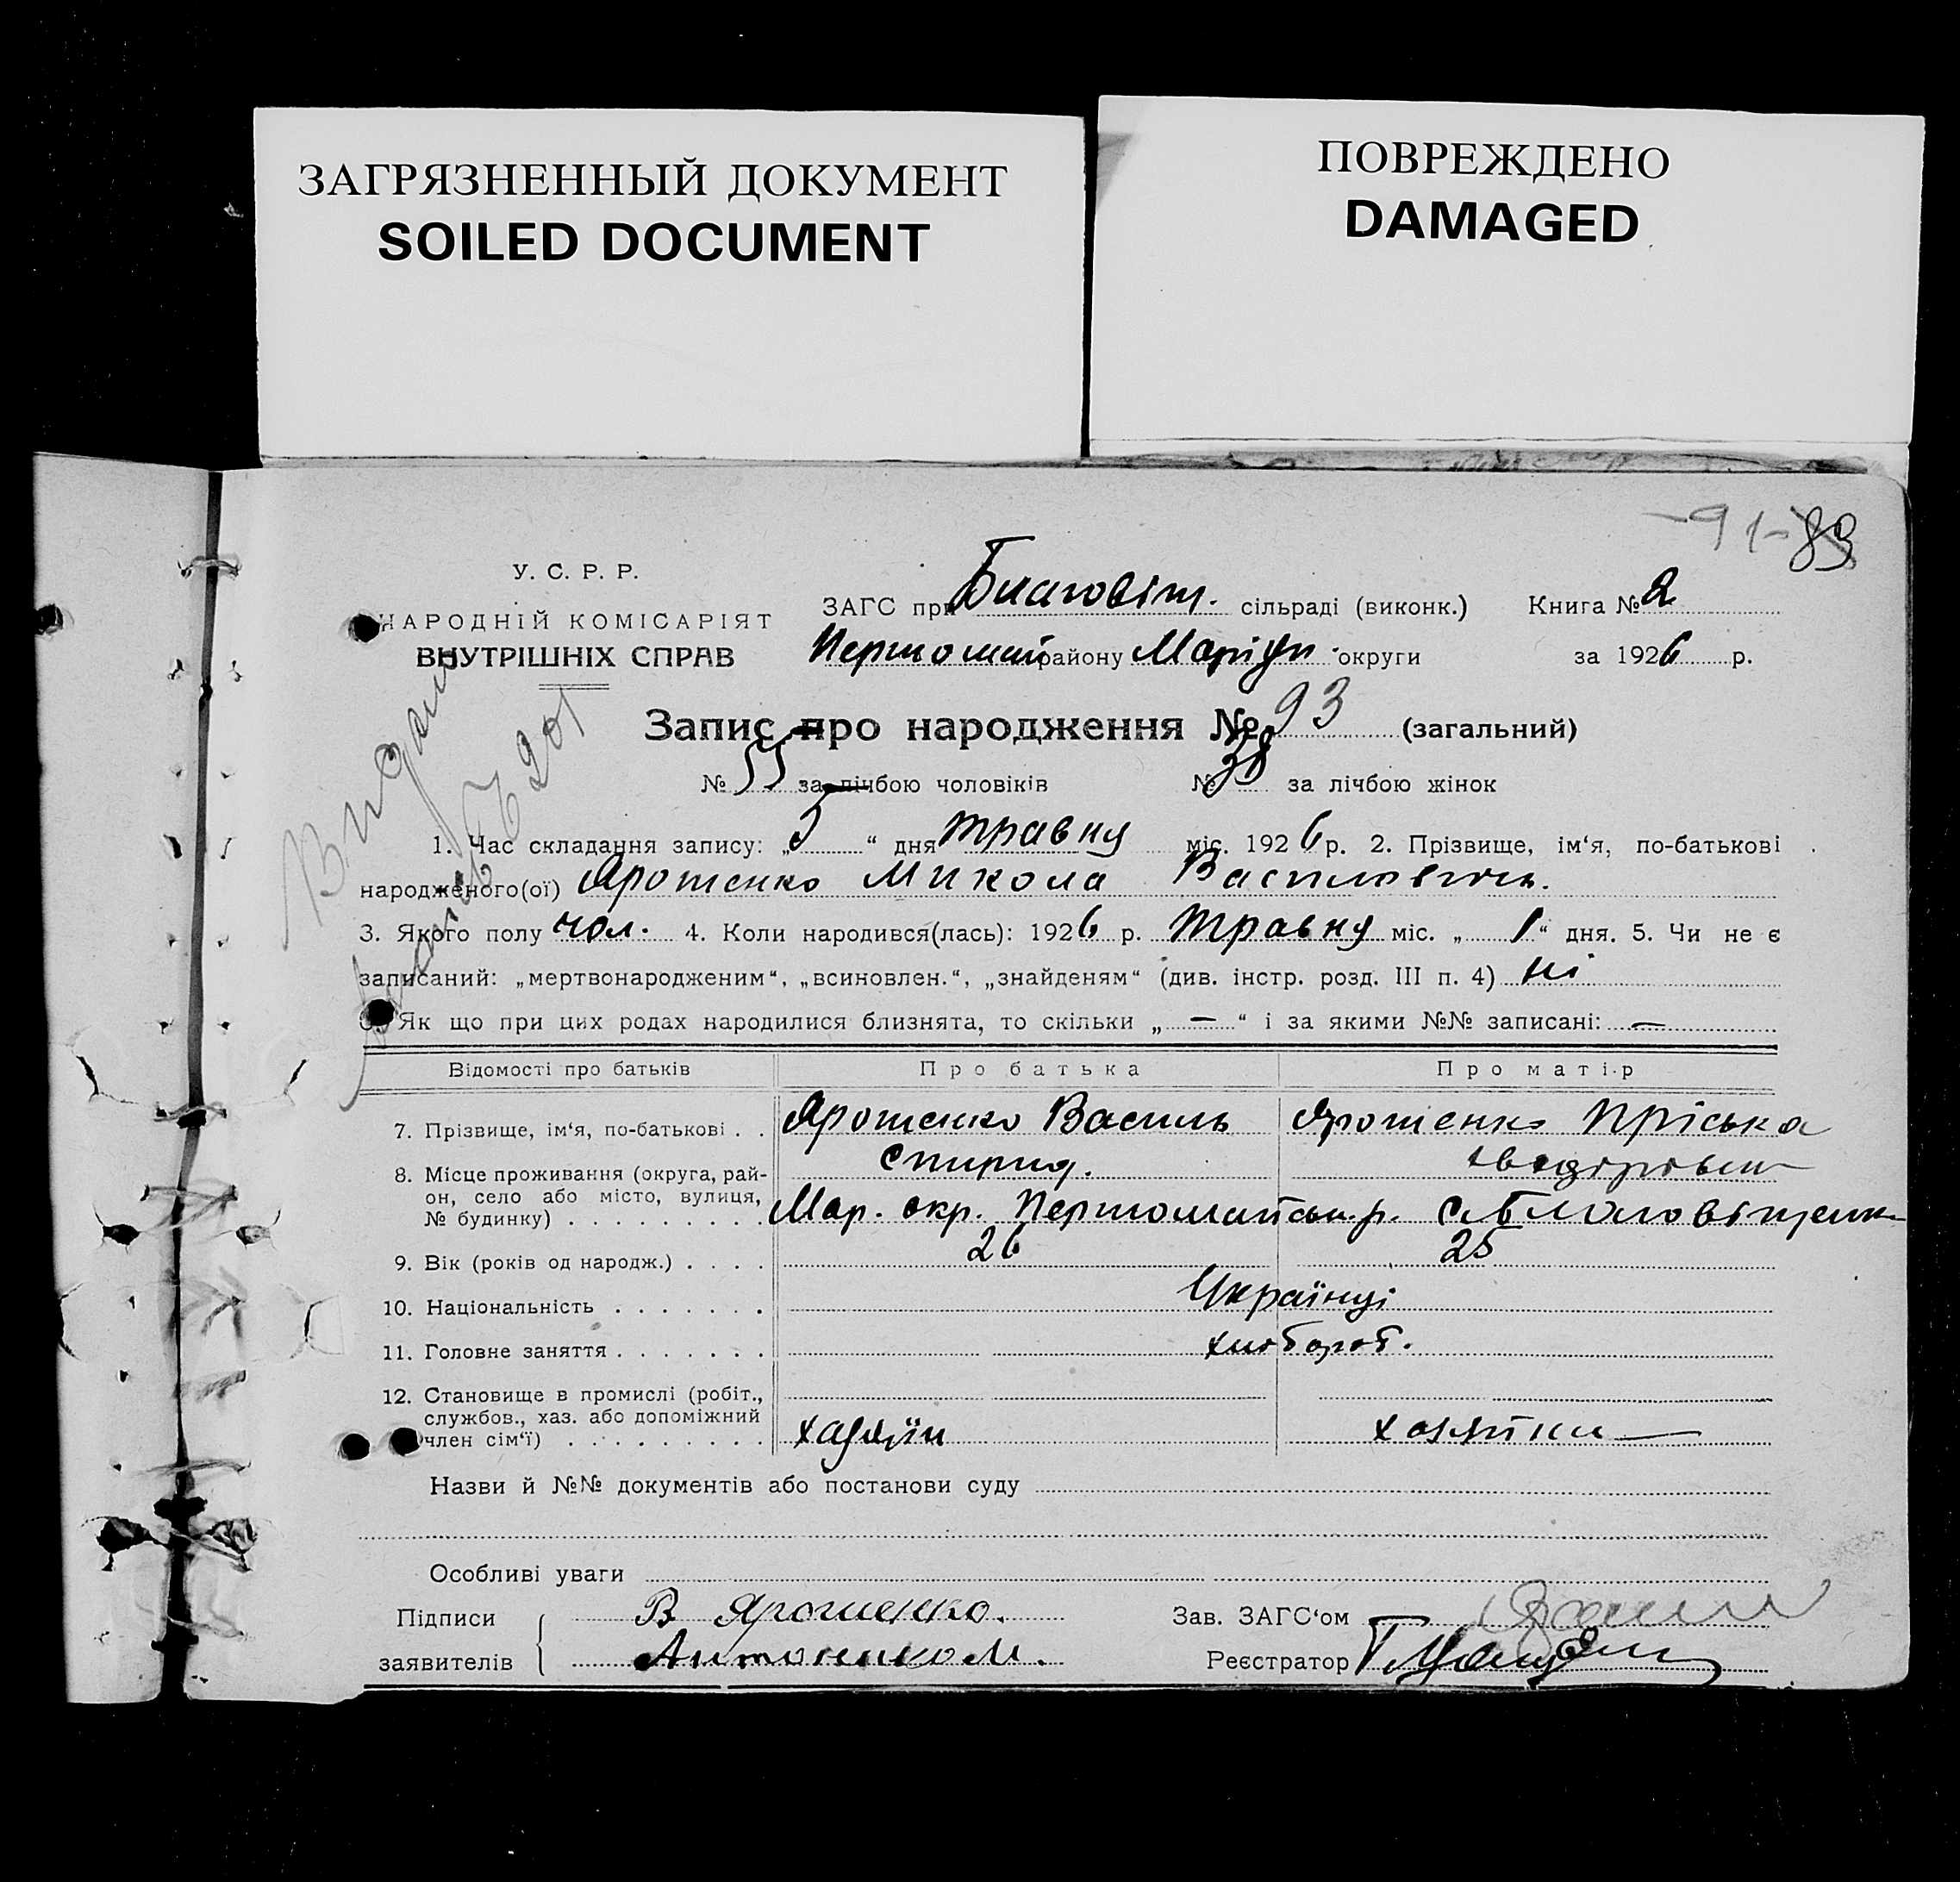 ЗАГРЯЗНЕННЫЙ ДОКУМЕНТ
SOILED DOCUMENT
ПОВРЕЖДЕНО
DAMAGED
91-89
У. С. Р. Р.
НАРОДНІЙ КОМІСАРІЯТ
ВНУТРІШНІХ СПРАВ
ЗАГС при Благовіщ. сільраді (виконк.) Книга № 2
Першомай району Маріуп. округи за 1926 р.
Запис про народження № 93 (загальний)
№ 55 за лічбою чоловіків № 38 за лічбою жінок
1. Час складання запису: „5“ дня травня міс. 1926 р. 2. Прізвище, ім‘я, по-батькові
народженого(ої) Ярошенко Микола Васильович.
3. Якого полу чол. 4. Коли народився(лась): 1926 р. травня міс. „1“ дня. 5. Чи не є
записаний: „мертвонародженим“, „всиновлен.“, „знайденям“ (див. інстр. розд. III п. 4) ні
6. Як що при цих родах народилися близнята, то скільки „—“ і за якими №№ записані: —
Відомості про батьків Про батька Про матір
7. Прізвище, ім‘я, по-батькові . . Ярошенко Василь Ярошенко Пріська
Спирид.
8. Місце проживання (округа, рай-
он, село або місто, вулиця,
№ будинку) . . . . . . . . . Мар. окр. Першомайськ. р. с. Благовіщенк
9. Вік (років од народж.) . . . . 26 25
10. Національність . . . . . . . Українці
11. Головне заняття . . . . . . . хлібороб.
12. Становище в промислі (робіт.,
службов., хаз. або допоміжний
член сім‘ї) . . . . . . . . . хазяїн хазяйка
Назви й №№ документів або постанови суду
Особливі уваги
Підписи В Ярошенко. Зав. ЗАГС‘ом
заявителів Антоненко М. Реєстратор
Видано